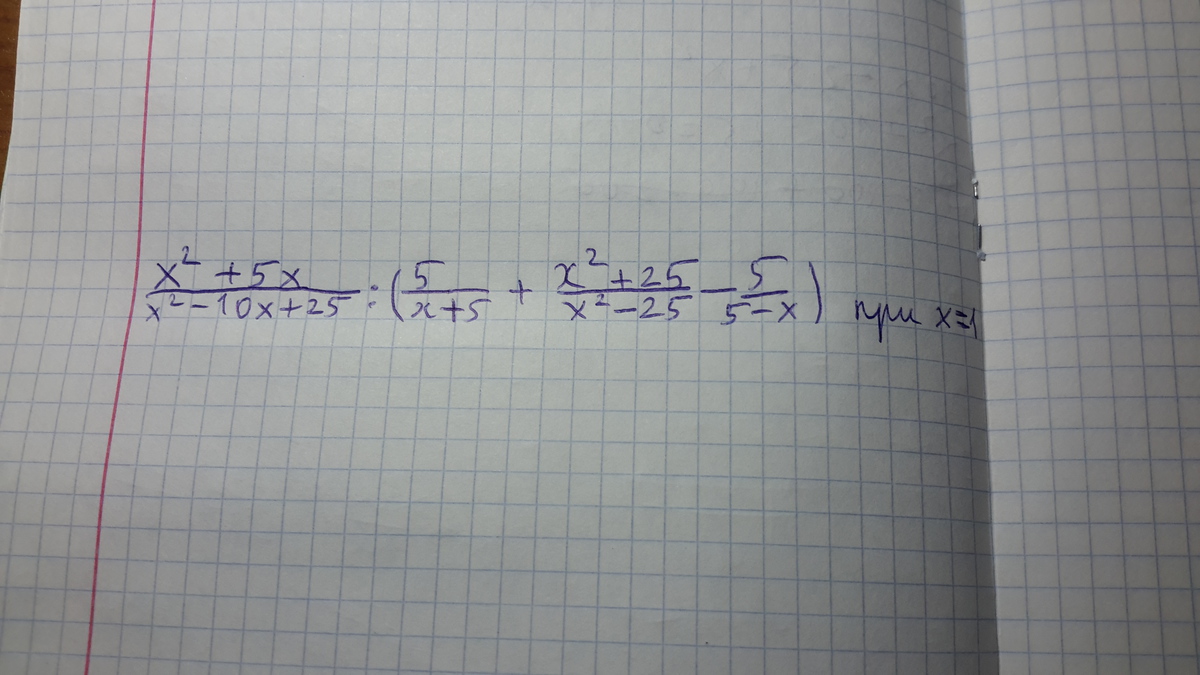 (x² + 5x)/(x² - 10x + 25) : (5/(x+5) + (x² + 25)/(x² - 25) - 5/(5 - x)) при x=1